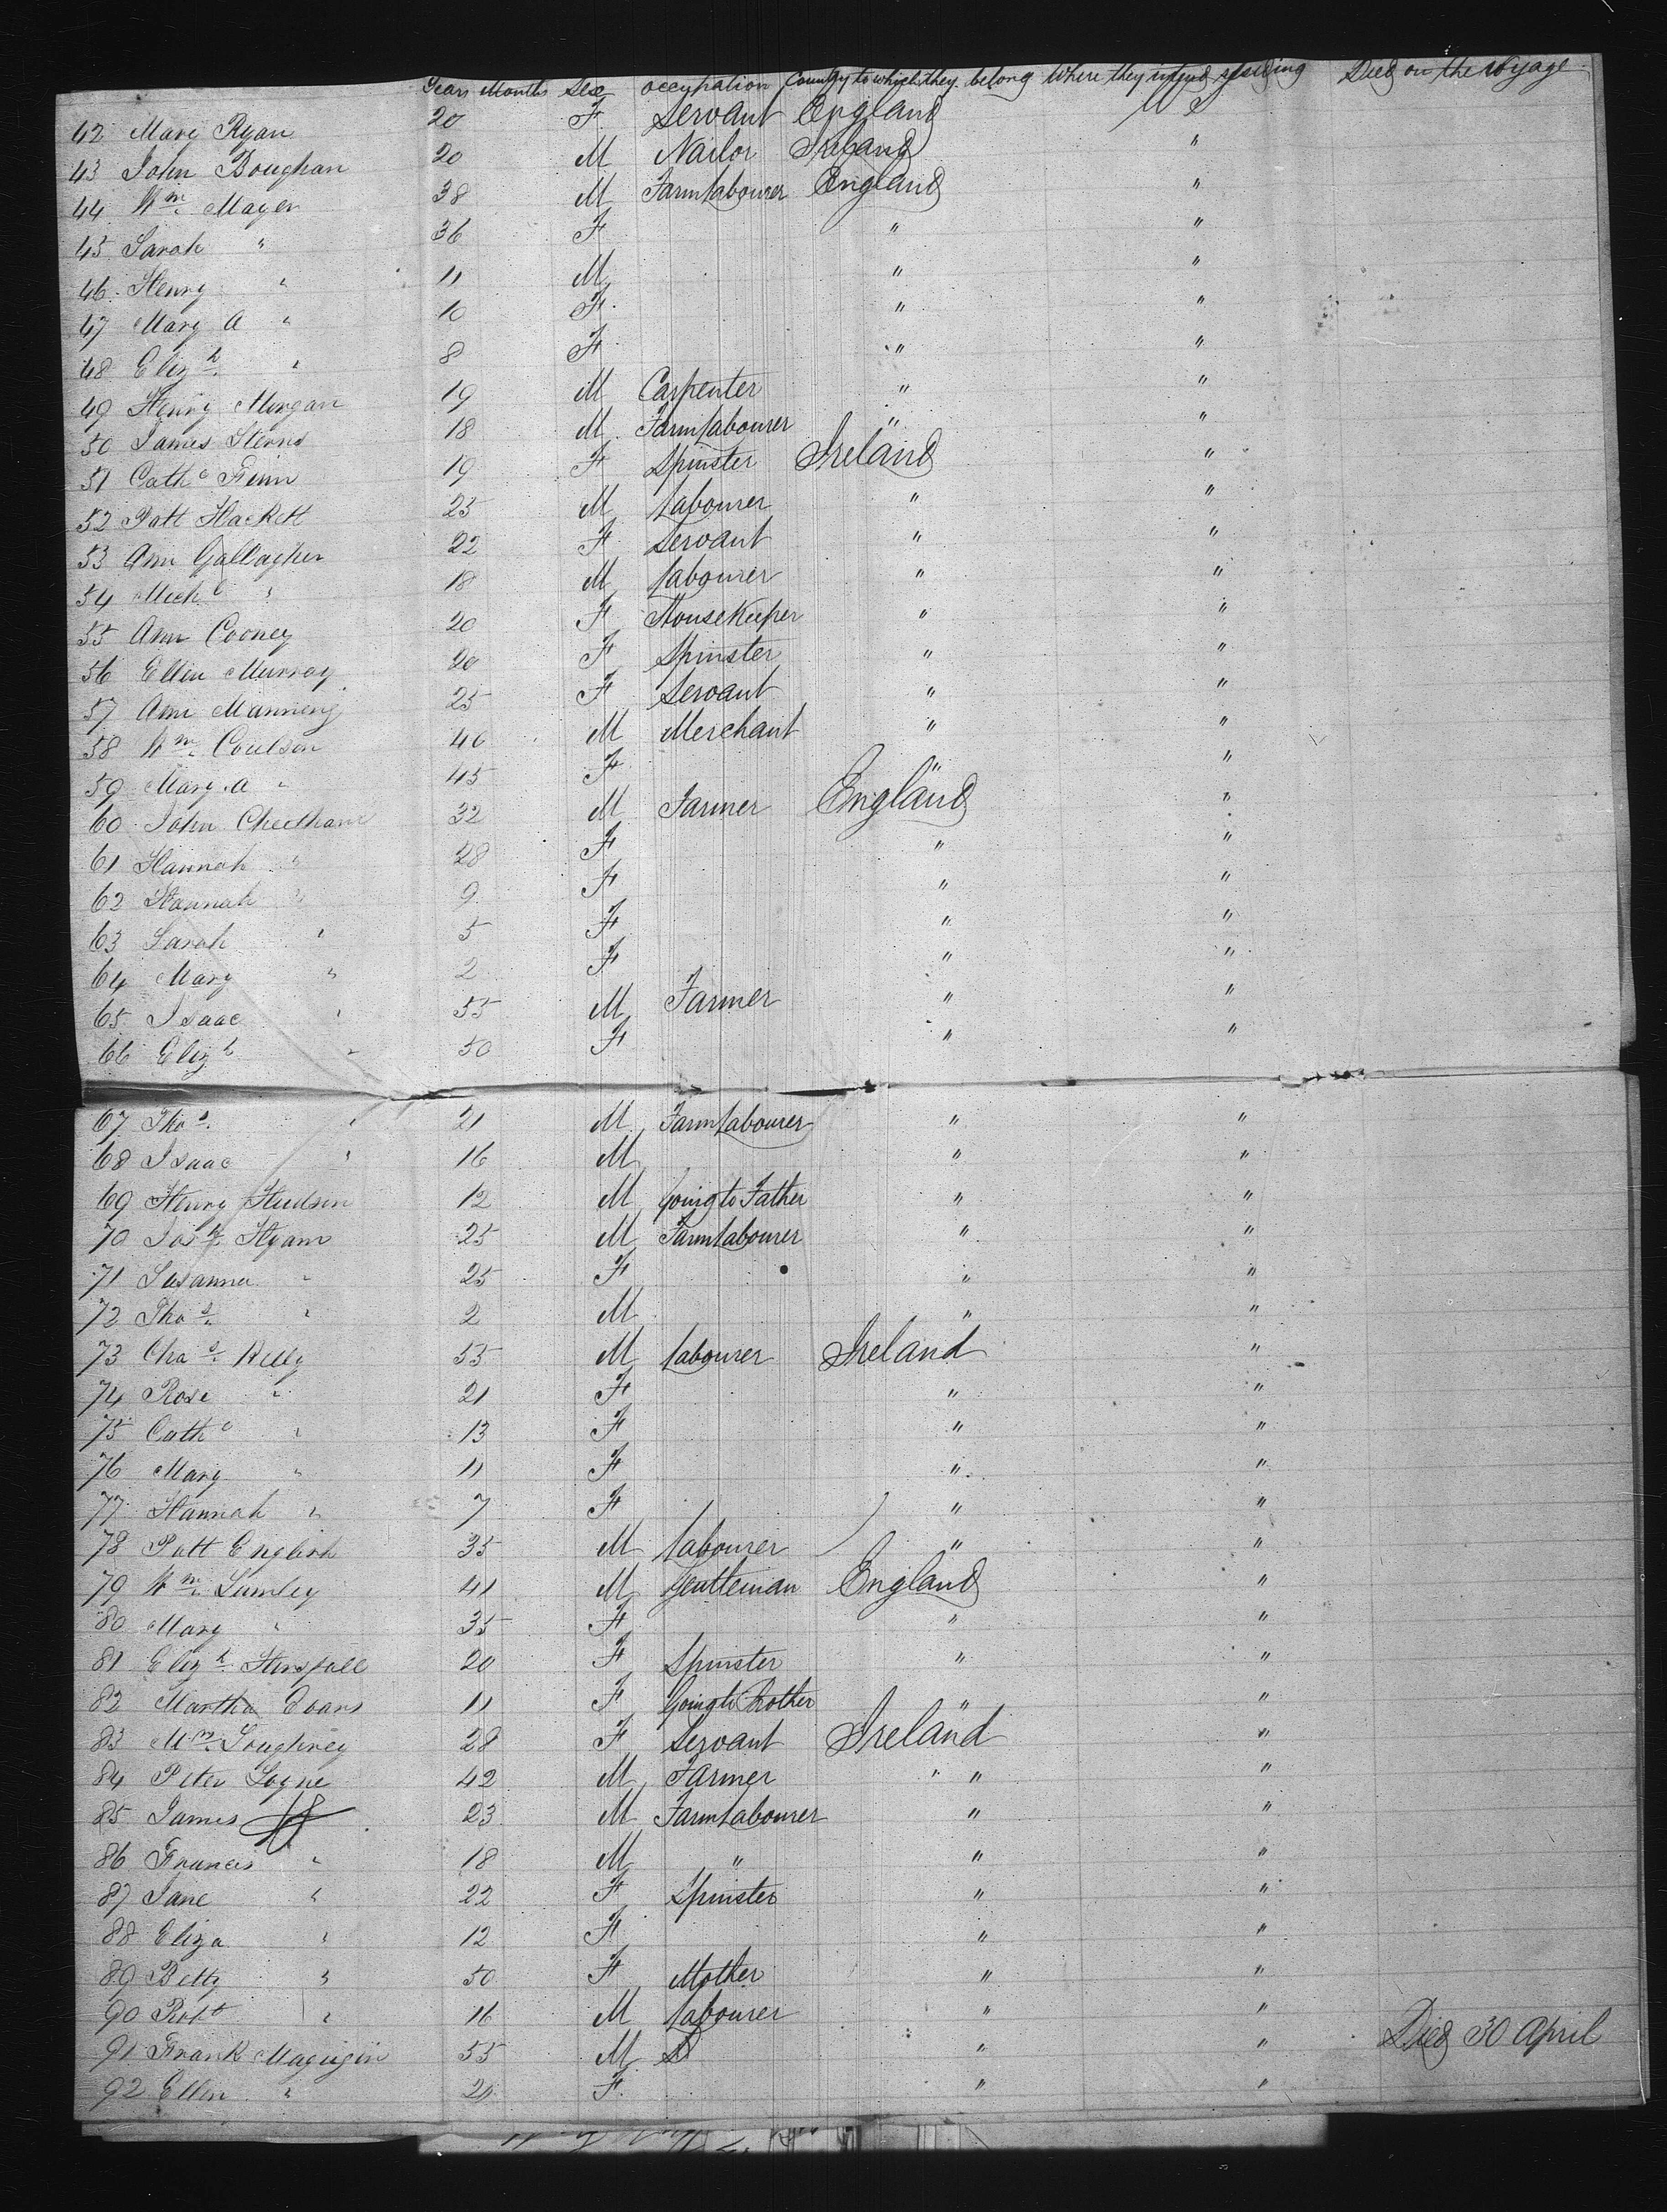 Years Months Sex occupation Country to which they belong Where they intend residing Died on the voyage
42 Mary Ryan 20 F Servant England U S
43 John Boughan 20 M Nailor Ireland "
44 Wm Mayer 38 M Farm Labourer England "
45 Sarah " 36 F " "
46 Henry " 11 M " "
47 Mary A " 10 F " "
48 Elizh " 8 F " "
49 Henry Morgan 19 M Carpenter " "
50 James Sterns 18 M Farm Labourer " "
51 Cathe Finn 19 F Spinster Ireland "
52 Patt Hackett 25 M Labourer " "
53 Ann Gallagher 22 F Servant " "
54 Michl " 18 M Labourer " "
55 Ann Cooney 20 F HouseKeeper " "
56 Ellen Murray 20 F Spinster " "
57 Ann Manning 25 F Servant " "
58 Wm Coulson 46 M Merchant " "
59 Mary A " 45 F " "
60 John Cheetham 32 M Farmer England "
61 Hannah " 28 F " "
62 Hannah " 9 F " "
63 Sarah " 5 F " "
64 Mary " 2 F " "
65 Isaac " 55 M Farmer " "
66 Elizh " 50 F " "
67 Thos " 21 M Farm Labourer " "
68 Isaac " 16 M " "
69 Henry Hudson 12 M Going to Father " "
70 Josh Hyam 25 M Farm Labourer " "
71 Susanna " 25 F " "
72 Thos " 2 M " "
73 Chas Kelly 55 M Labourer Ireland "
74 Rose " 21 F " "
75 Cathe " 13 F " "
76 Mary " 11 F " "
77 Hannah " 7 F " "
78 Patt English 35 M Labourer " "
79 Wm Lumley 41 M Gentleman England "
80 Mary " 35 F " "
81 Elizh Horsfall 20 F Spinster " "
82 Martha Evans 11 F Going to Mother " "
83 Loughrey 28 F Servant Ireland "
84 Peter Logue 42 M Farmer " "
85 James 23 M Farm Labourer " "
86 Francis " 18 M " " "
87 Jane " 22 F Spinster " "
88 Eliza " 12 F " "
89 Betty " 50 F Mother " "
90 Robt " 16 M Labourer " "
91 Frank Magugin 55 M Do " " Died 30 April
92 Ellen " 20 F " "